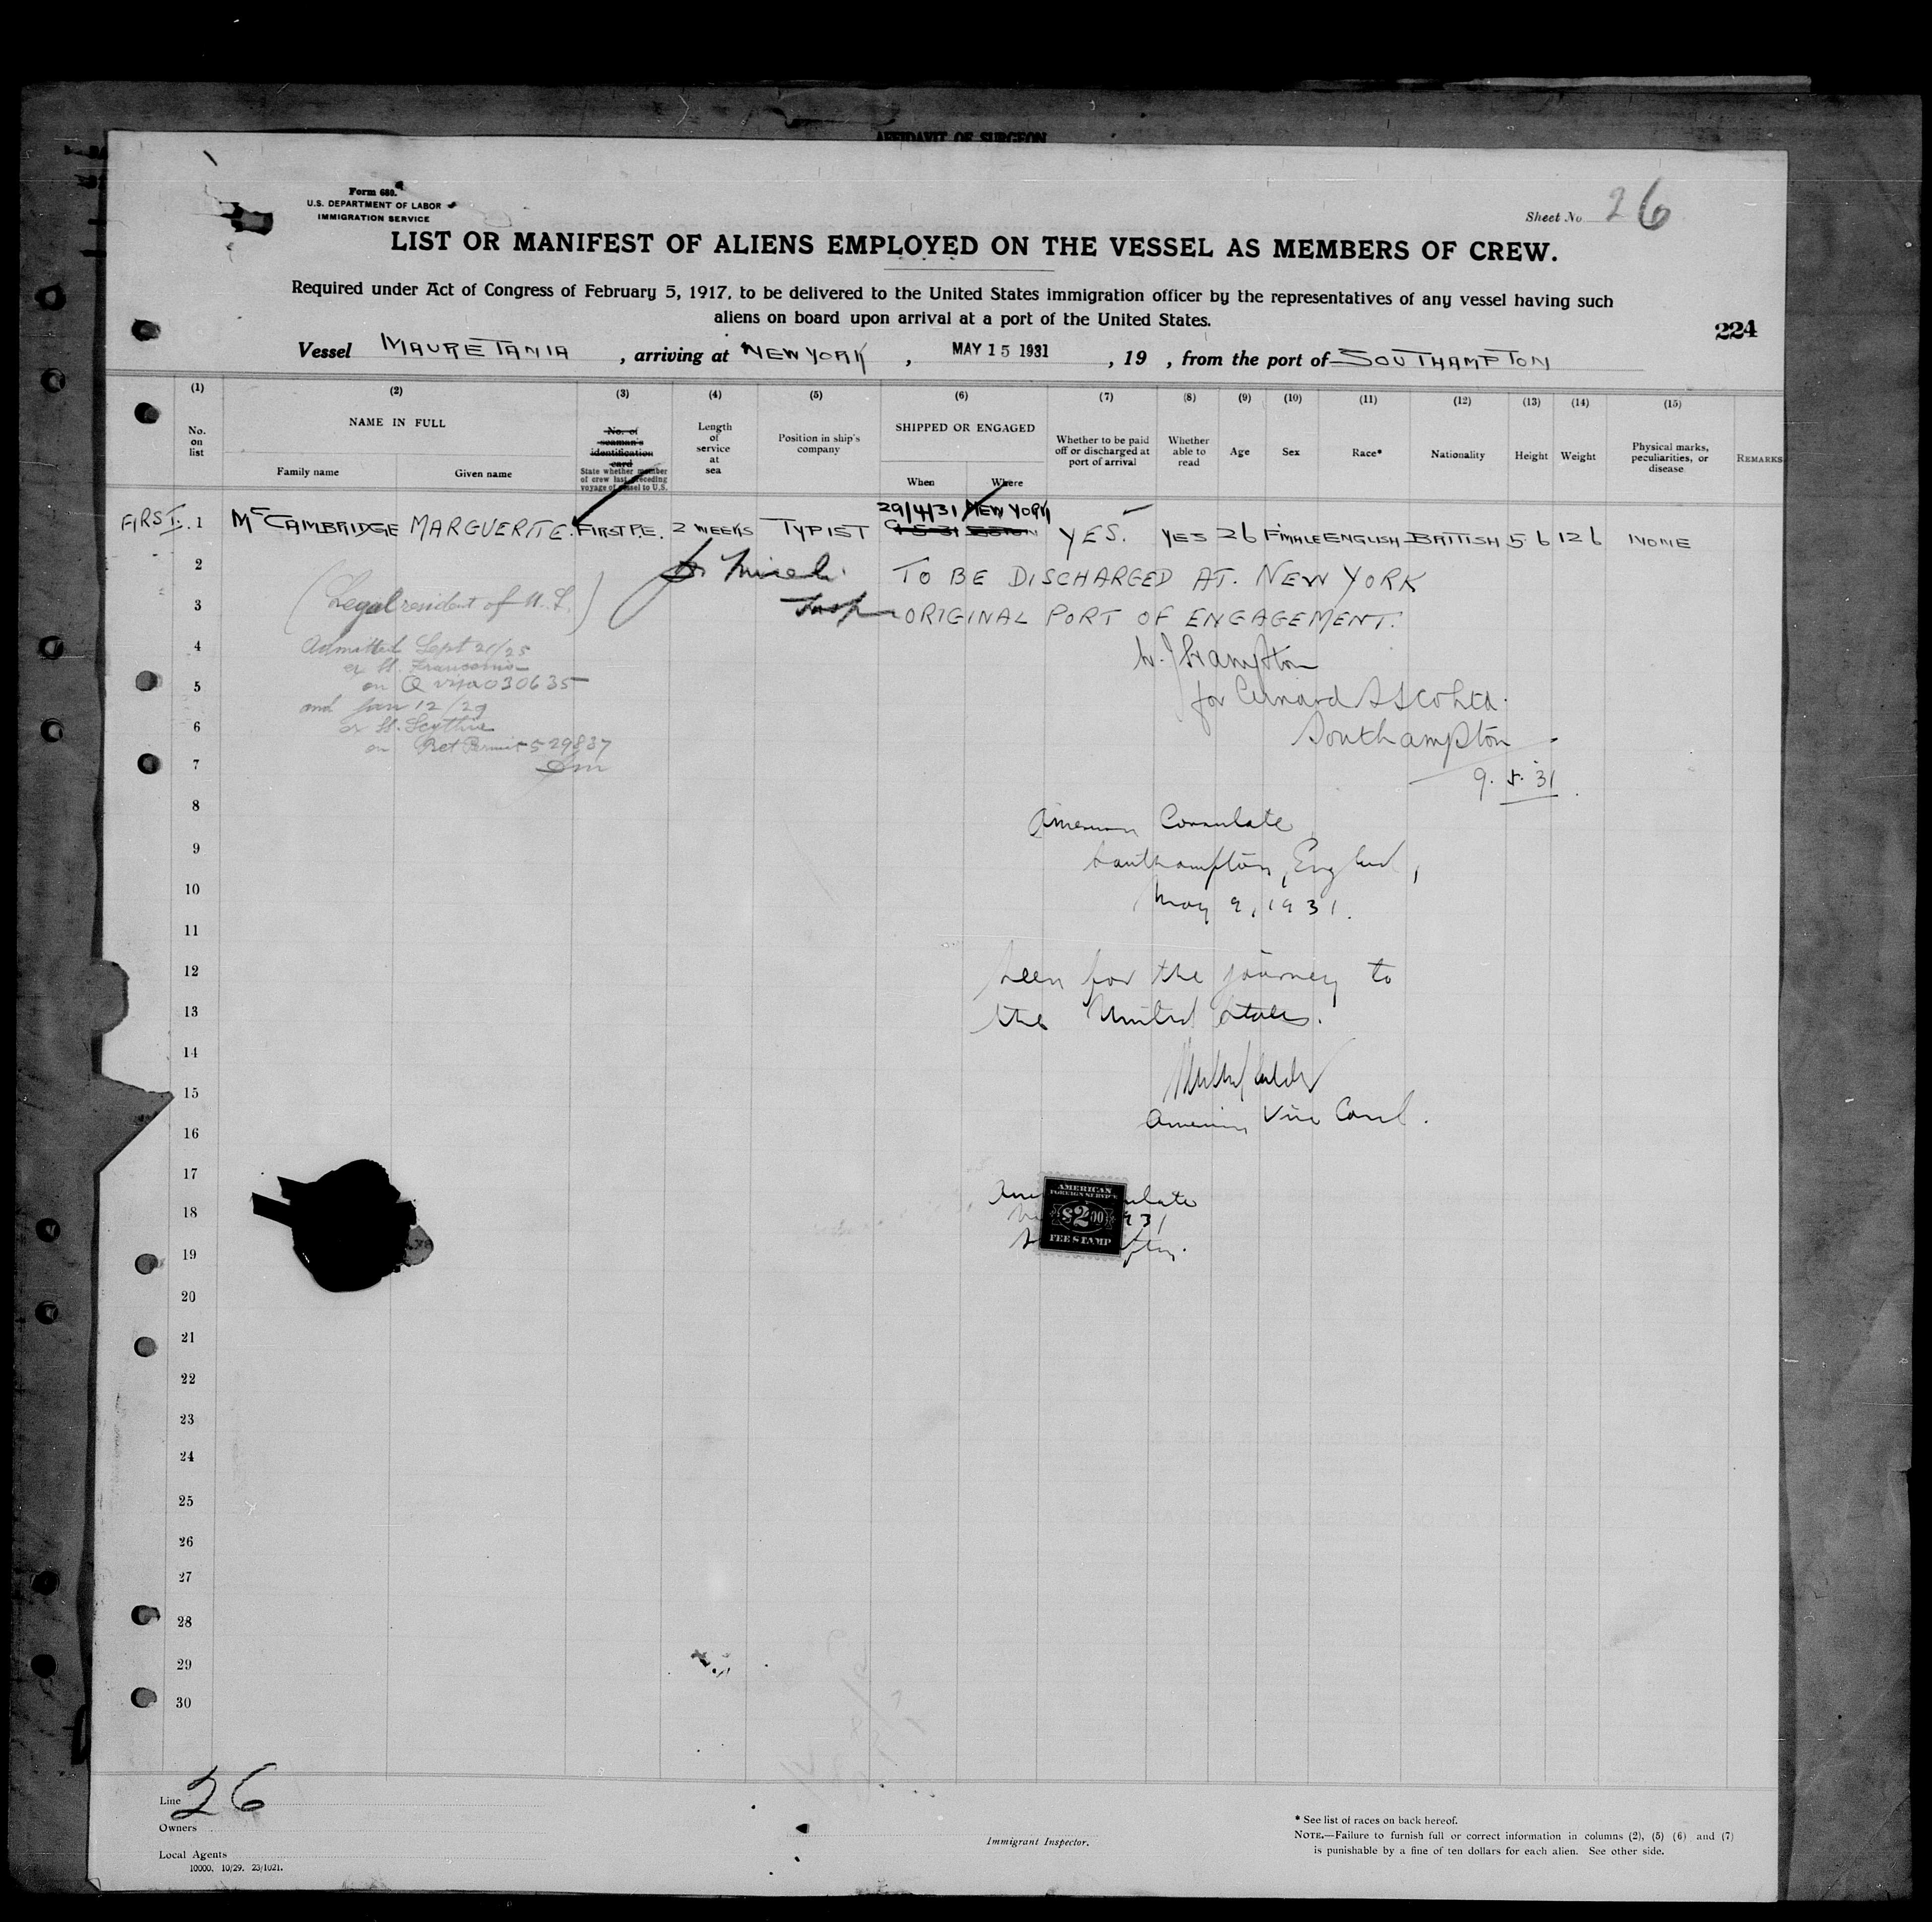 AFFIDAVIT OF SURGEON
Form 680.
U.S. DEPARTMENT OF LABOR
IMMIGRATION SERVICE
Sheet No 26
LIST OR MANIFEST OF ALIENS EMPLOYED ON THE VESSEL AS MEMBERS OF CREW.
Required under Act of Congress of February 5, 1917, to be delivered to the United States immigration officer by the representatives of any vessel having such
aliens on board upon arrival at a port of the United States.
224
Vessel MAURETANIA , arriving at NEW YORK , MAY 15 1931 , 19 , from the port of SOUTHAMPTON
(1) (2) (3) (4) (5) (6) (7) (8) (9) (10) (11) (12) (13) (14) (15)
No. on list
NAME IN FULL
Family name Given name
No. of seaman's identification card
State whether member of crew last preceding voyage of vessel to U.S.
Length of service at sea
Position in ship's company
SHIPPED OR ENGAGED
When Where
Whether to be paid off or discharged at port of arrival
Whether able to read
Age
Sex
Race*
Nationality
Height
Weight
Physical marks, peculiarities, or disease
REMARKS
29/4/31 NEW YORK
FIRST. 1 McCAMBRIDGE MARGUERITE. FIRST P.E. 2 WEEKS TYPIST YES. YES 26 FIMALE ENGLISH BRITISH 5 6 126 NONE
2 TO BE DISCHARGED AT. NEW YORK
(Legal resident of U.S.)
3 ORIGINAL PORT OF ENGAGEMENT.
4 Admitted Sept 21/25
ex SS. Franconia
for Cunard SS Co Ltd.
5 on Q visa 030635
and Jan 12/29
6 ex SS. Scythia
Southampton
on Ret Permit 529837
7
9.5.31
8 American Consulate
9 Southampton, England,
10 May 9, 1931.
11
12 Seen for the journey to
13 the United States.
14
15
16 American Vice Consul.
17
AMERICAN
FOREIGN SERVICE
18 $2.00
FEE STAMP
19
20
21
22
23
24
25
26
27
28
29
30
Line 26
Owners
Local Agents
10000. 10/29. 23/1021.
Immigrant Inspector.
* See list of races on back hereof.
NOTE.—Failure to furnish full or correct information in columns (2), (5) (6) and (7)
is punishable by a fine of ten dollars for each alien. See other side.